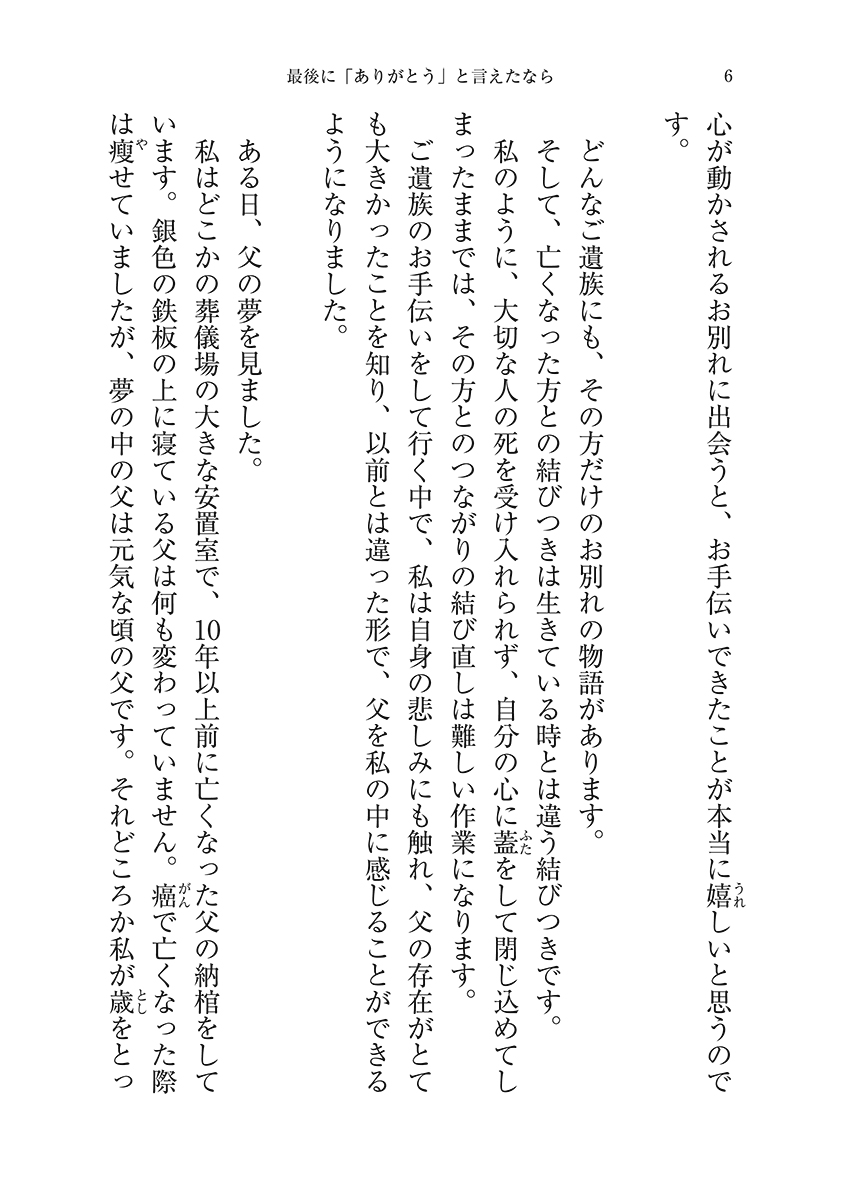 最後に「ありがとう」と言えたなら
6
心が動かされるお別れに出会うと、お手伝いできたことが本当に嬉しいと思うので
うれ
す。
どんなご遺族にも、その方だけのお別れの物語があります。
そして、亡くなった方との結びつきは生きている時とは違う結びつきです。
私のように、大切な人の死を受け入れられず、自分の心に蓋をして閉じ込めてし
ふた
まったままでは、その方とのつながりの結び直しは難しい作業になります。
ご遺族のお手伝いをして行く中で、私は自身の悲しみにも触れ、父の存在がとて
も大きかったことを知り、以前とは違った形で、父を私の中に感じることができる
ようになりました。
ある日、父の夢を見ました。
私はどこかの葬儀場の大きな安置室で、10年以上前に亡くなった父の納棺をして
います。銀色の鉄板の上に寝ている父は何も変わっていません。癌で亡くなった際
がん
は痩せていましたが、夢の中の父は元気な頃の父です。それどころか私が歳をとっ
や
とし